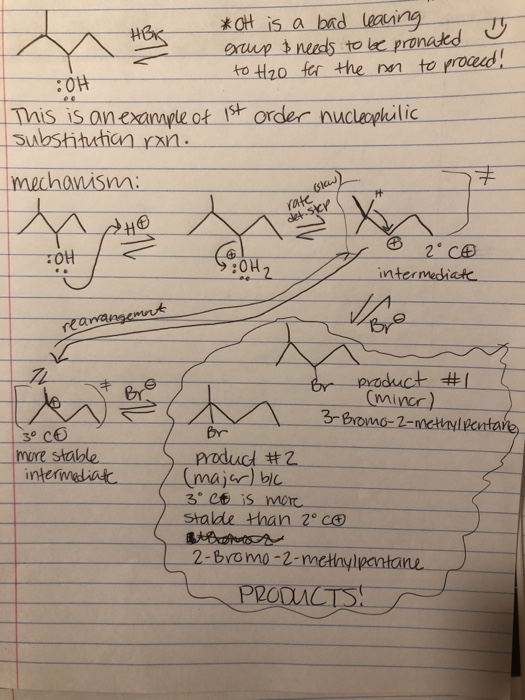 HBr
*OH is a bad leaving
group & needs to be pronated
to H2O for the rxn to proceed!
:OH
This is an example of 1st order nucleophilic
substitution rxn.
mechanism:
:OH
H⊕
⊕
:OH2
rate (slow)
det. step
H
⊕
≠
2° C⊕
intermediate
rearrangement
Br⊖
Br
product #1
(minor)
3-Bromo-2-methylpentane
⊕
≠
3° C⊕
more stable
intermediate
Br⊖
Br
product #2
(major) b/c
3° C⊕ is more
stable than 2° C⊕
2-Bromo-2-methylpentane
PRODUCTS!